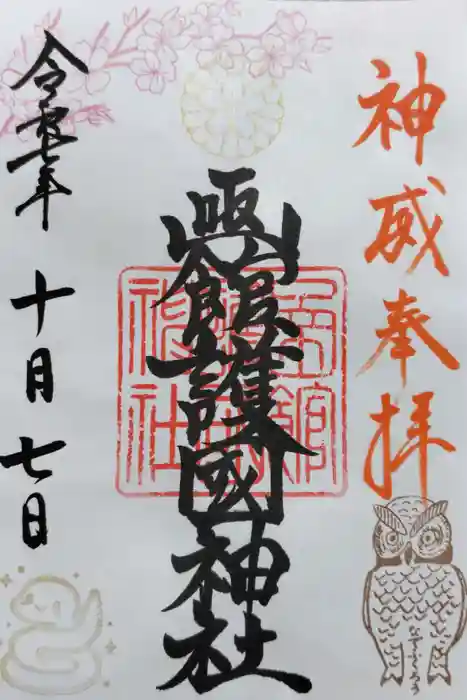 神威奉拝
凾館護國神社
令和七年
十月七日
函館
護國
神社